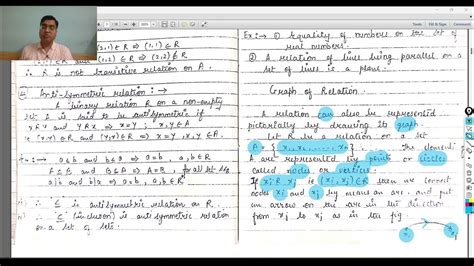 (3,1) ∈ R ⇒ (1,1) ∈ R
⇒ (2,2) ∉ R
∴ R is not transitive relation on A.
Anti-Symmetric relation :→
A binary relation R on a non-empty
set A is said to be antisymmetric if
xRy and yRx ⇒ x=y ; x,y ∈ A
(x,y) ∈ R and (y,x) ∈ R ⇒ x=y, x,y ∈ A
Ex:→ a≤b and b≤a ⇒ a=b, a,b ∈ R
A⊆B and B⊆A ⇒ A=B, for all set
a|b and b|a ⇒ a=b, a,b ∈
∴ ≤ is antisymmetric relation on R.
⊆ (inclusion) is antisymmetric relation
on a set of sets.
Ex:→ ① Equality of numbers on the set of
real numbers.
② A relation of lines being parallel on a
set of lines is a plane.
Graph of Relation
A relation can also be represented
pictorially by drawing its graph.
Let R be a relation on a set
A = {x₁, x₂, ... }. The elements
A are represented by points or circles
called nodes or vertices.
If xᵢ R xⱼ is (xᵢ, xⱼ) ∈ R then we connect
nodes xᵢ and xⱼ by means an arc and put
an arrow on the arc in the direction
from xᵢ to xⱼ as in the fig.